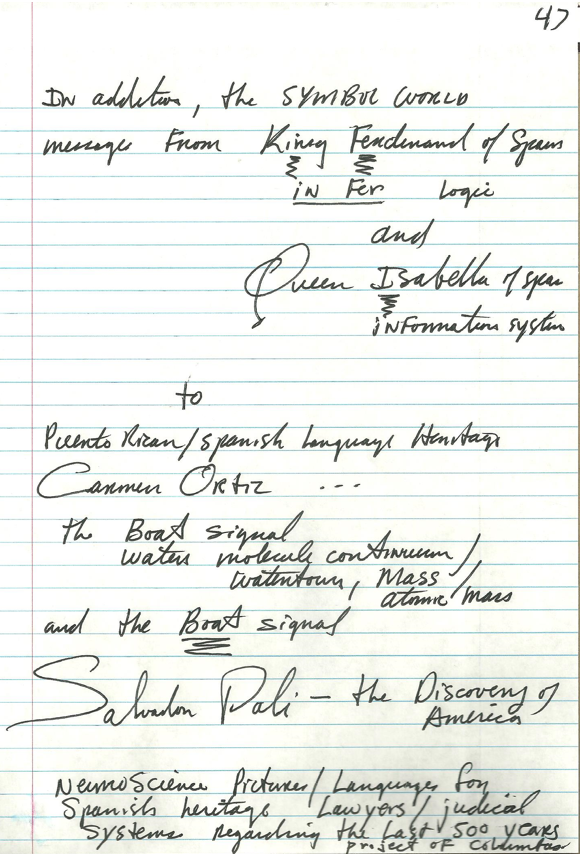 47
IN addition, the SYMBOL WORLD
messages From King Ferdinand of Spain
in Fer Logic
and
Queen Isabella of spain
iNFormation system
to
Puerto Rican/spanish Language Heritage
Carmen ORTIZ ...
the Boat signal
waters molecule continuum/
Watertown, Mass/
atomic mass
and the Boat signal
Salvador Dali – the Discovery of
America
NeuroScience Pictures/Languages for
Spanish heritage Lawyers/judicial
Systems regarding the Last 500 years
project of Columbus